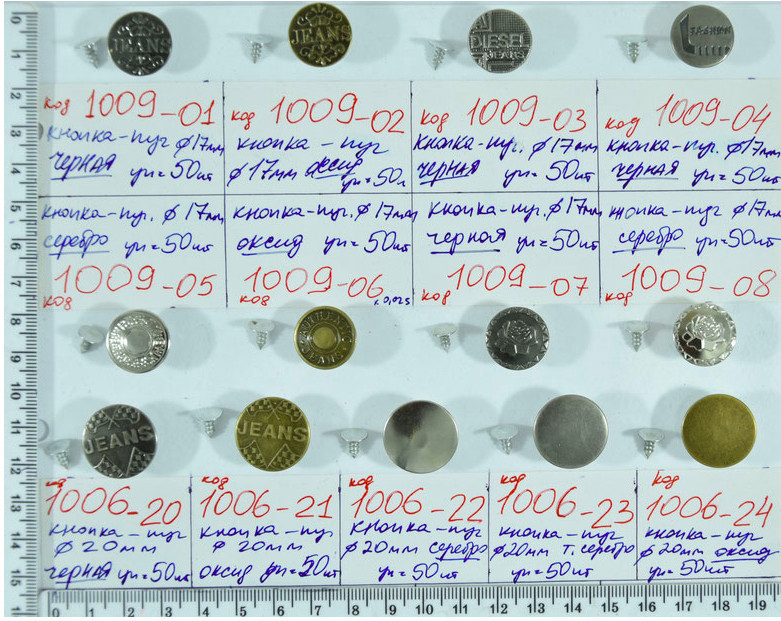 JEANS
JEANS
DIESEL
JEANS
FASHION
код 1009-01
кнопка-пуг ф17мм
черная уп=50шт
код 1009-02
кнопка-пуг
ф17мм оксид
уп=50
код 1009-03
кнопка-пуг. ф17мм
черная уп=50шт
код 1009-04
кнопка-пуг. ф17мм
черная уп=50шт
кнопка-пуг. ф17мм
серебро уп=50шт
1009-05
код
кнопка-пуг. ф17мм
оксид уп=50шт
1009-06
код
кнопка-пуг. ф17мм
черная уп=50шт
код 1009-07
кнопка-пуг ф17мм
серебро уп=50шт
код 1009-08
JEANS
JEANS
JEANS
код
1006-20
кнопка-пуг
ф20мм
черная уп=50шт
код
1006-21
кнопка-пуг
ф 20мм
оксид уп=50шт
код
1006-22
кнопка-пуг
ф20мм серебро
уп=50шт
код
1006-23
кнопка-пуг
ф20мм т.серебро
уп=50шт
код
1006-24
кнопка-пуг
ф20мм оксид
уп=50шт
0 1 2 3 4 5 6 7 8 9 10 11 12 13 14 15
0 1 2 3 4 5 6 7 8 9 10 11 12 13 14 15 16 17 18 19